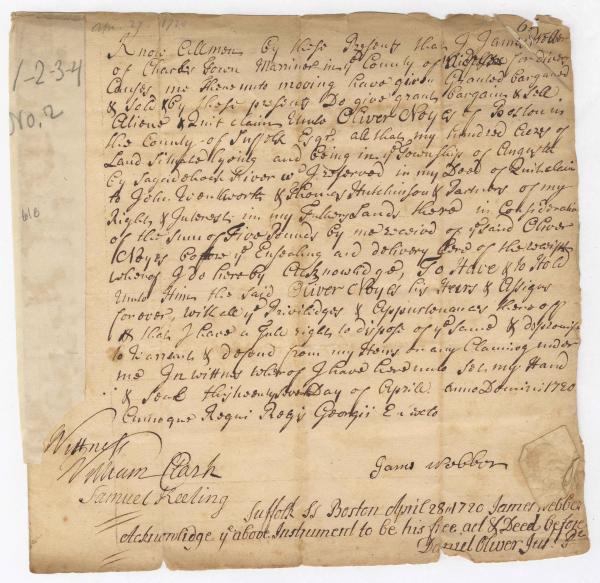 apr. 27. 1720
1-2-3-4
No. 2
610
Know All men by these Presents that I James Webber
of Charles Town Mariner in ye County of Midlesex for divers
Causes me thereunto moving have given Granted bargained
& Sold & by these presents Do give grant bargain & Sell
Aliene & Quit claim Unto Oliver Noyes of Boston in
the County of Suffolk Esqr. all that my hundred Acres of
Land Situate lying and being in ye Township of Augusta
by Sagadahock River wch I reserved in my Deed of Quitclaim
to John Wentworth & Thomas Hutchinson & Partners of my
Right & Interest in my Fathers Lands there in Consideration
of the Sum of Five Pounds by me received of ye said Oliver
Noyes before ye Ensealing and delivery here of the receipt
whereof I Do hereby Acknowledge, To Have & to Hold
Unto Him the said Oliver Noyes his Heirs & Assigns
forever, with all ye Priviledges & Appurtenances thereoff
& that I have a Full right to dispose of ye same & do promise
to Warrant & defend from my Heirs or any Claiming under
me In wittnes whereof I have hereunto Set my Hand
& Seal this twenty seventh Day of Aprile anno Domini 1720
Annoque Regni Regis Georgii Sexto
Wittness
William Clark
Samuel Keeling
James Webber
Suffolk Ss Boston April 28th 1720 James Webber
Acknowledge ye above Instrument to be his free act & Deed before
Daniel Oliver Jus. Pce